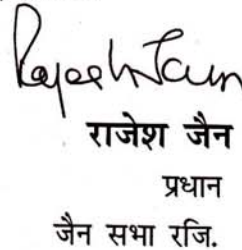 Rajesh Jain
राजेश जैन
प्रधान
जैन सभा रजि.